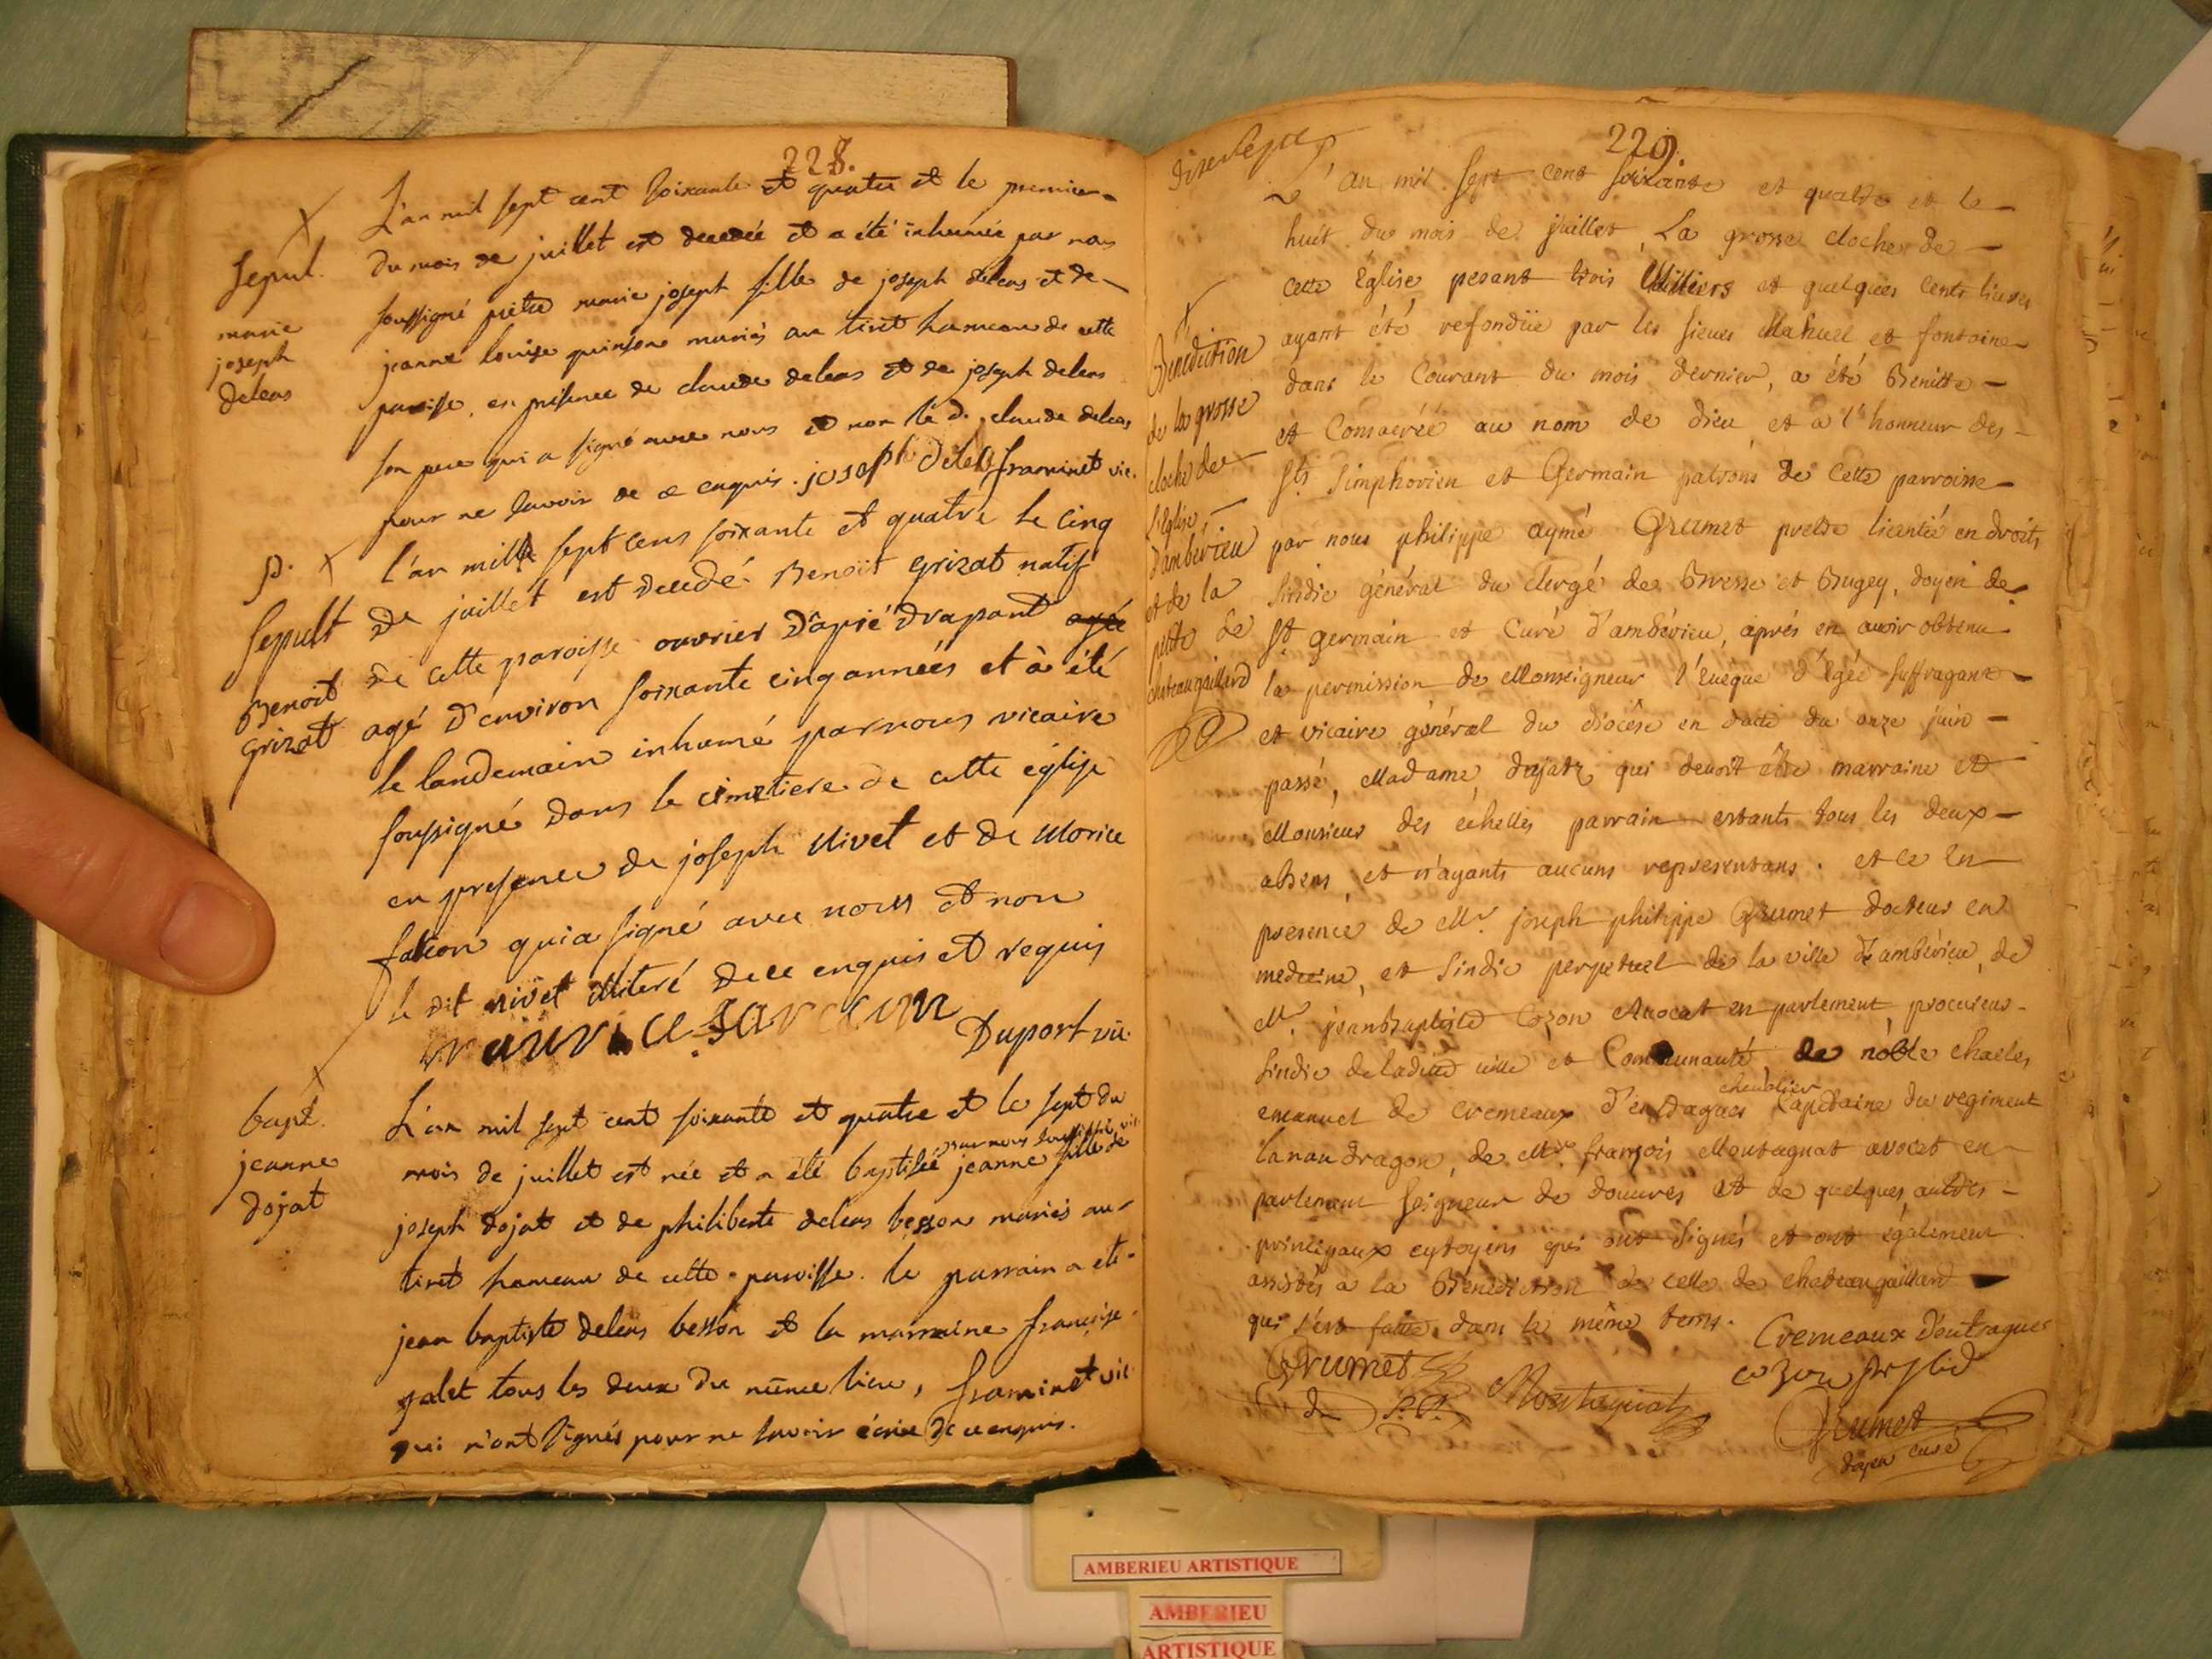 228.
L'an mil sept cent soixante et quatre et le premier
du mois de juillet est decedée et a été inhumée par nous
soussigné prêtre marie joseph fille de joseph deleas et de
jeanne louise quinsone mariés au tiret hameau de cette
paroisse, en présence de claude deleas et de joseph deleas
son pere qui a signé avec nous et non le d. claude deleas
pour ne savoir de ce enquis. joseph deleas framinet vic.
Sepul.
marie
joseph
deleas
l'an mille sept cens soixante et quatre le cinq
de juillet est decedé Benoit grizat natif
de cette paroisse ouvrier D'apié drapant agée
agé d'environ soixante cinq années et à été
le landemain inhumé par nous vicaire
soussigné dans le cimetiere de cette église
en presence de joseph Nivet et de Morice
qui a signé avec nous et non
le dit nivet illiteré de ce enquis et requis
Duport vic.
p.
Sepult
Benoit
grizat
L'an mil sept cent soixante et quatre et le sept du
par nous soussigné vic.
mois de juillet est née et a été baptisée jeanne fille de
joseph dojat et de philiberte deleas besson mariés au
tiret hameau de cette paroisse. le parrain a eté
jean baptiste deleas besson et la marraine françoise
galet tous les deux du même lieu, framinet vic
qui n'ont signés pour ne savoir écrire de ce enquis.
bapt.
jeanne
dojat
229.
L'an mil sept cent soixante et quatre et le
huit du mois de juillet, La grosse cloche de
cette Eglise pesant trois Milliers et quelques cents livres
ayant été refondüe par les sieurs Mahuel et fontaine
dans le Courant du mois dernier, a été Benitte
et Consacréé au nom de dieu et a l'honneur des
Sts Simphorien et Germain patrons de Cette parroisse
par nous philippe aymé Grumet pretre licentié en droits
sindic général du clergé de Bresse et Bugey, doyen de
St germain et Curé d'ambérieu, aprés en avoir obtenu
la permission de Monseigneur l'Eveque d'Egée suffragant
et vicaire général du diocése en datte du onze juin
passé, Madame dujatz qui devoit être marraine et
Monsieur des échelles parrain estants tous les deux
absens et n'ayants aucuns representans. et ce En
presence de Mr. joseph philippe Grumet docteur en
medecine, et sindic perpetuel de la ville d'ambérieu, de
Mr. jeanbaptiste Cozon Avocat en parlement procureur
sindic de ladite ville et Communauté de noble charles
chevalier
emanuel de cremeaux d'entragues Capitaine du regiment
lanau dragon, de Mre françois Montagnat avocat en
parlement seigneur de douvres et de quelques autres
principaux cytoyens qui ont signés et ont également
assistés a la Benediction de celle de chateaugaillard
qui s'est faite dans le même tems.
Cremeaux D'entragues
Grumet
Montagnat
cozon pr sind
Grumet
doyen curé
Benediction
de la grosse
cloche de
l'Eglise
d'ambérieu
et de la
petite de
chateaugaillard
AMBERIEU ARTISTIQUE
AMBERIEU
ARTISTIQUE